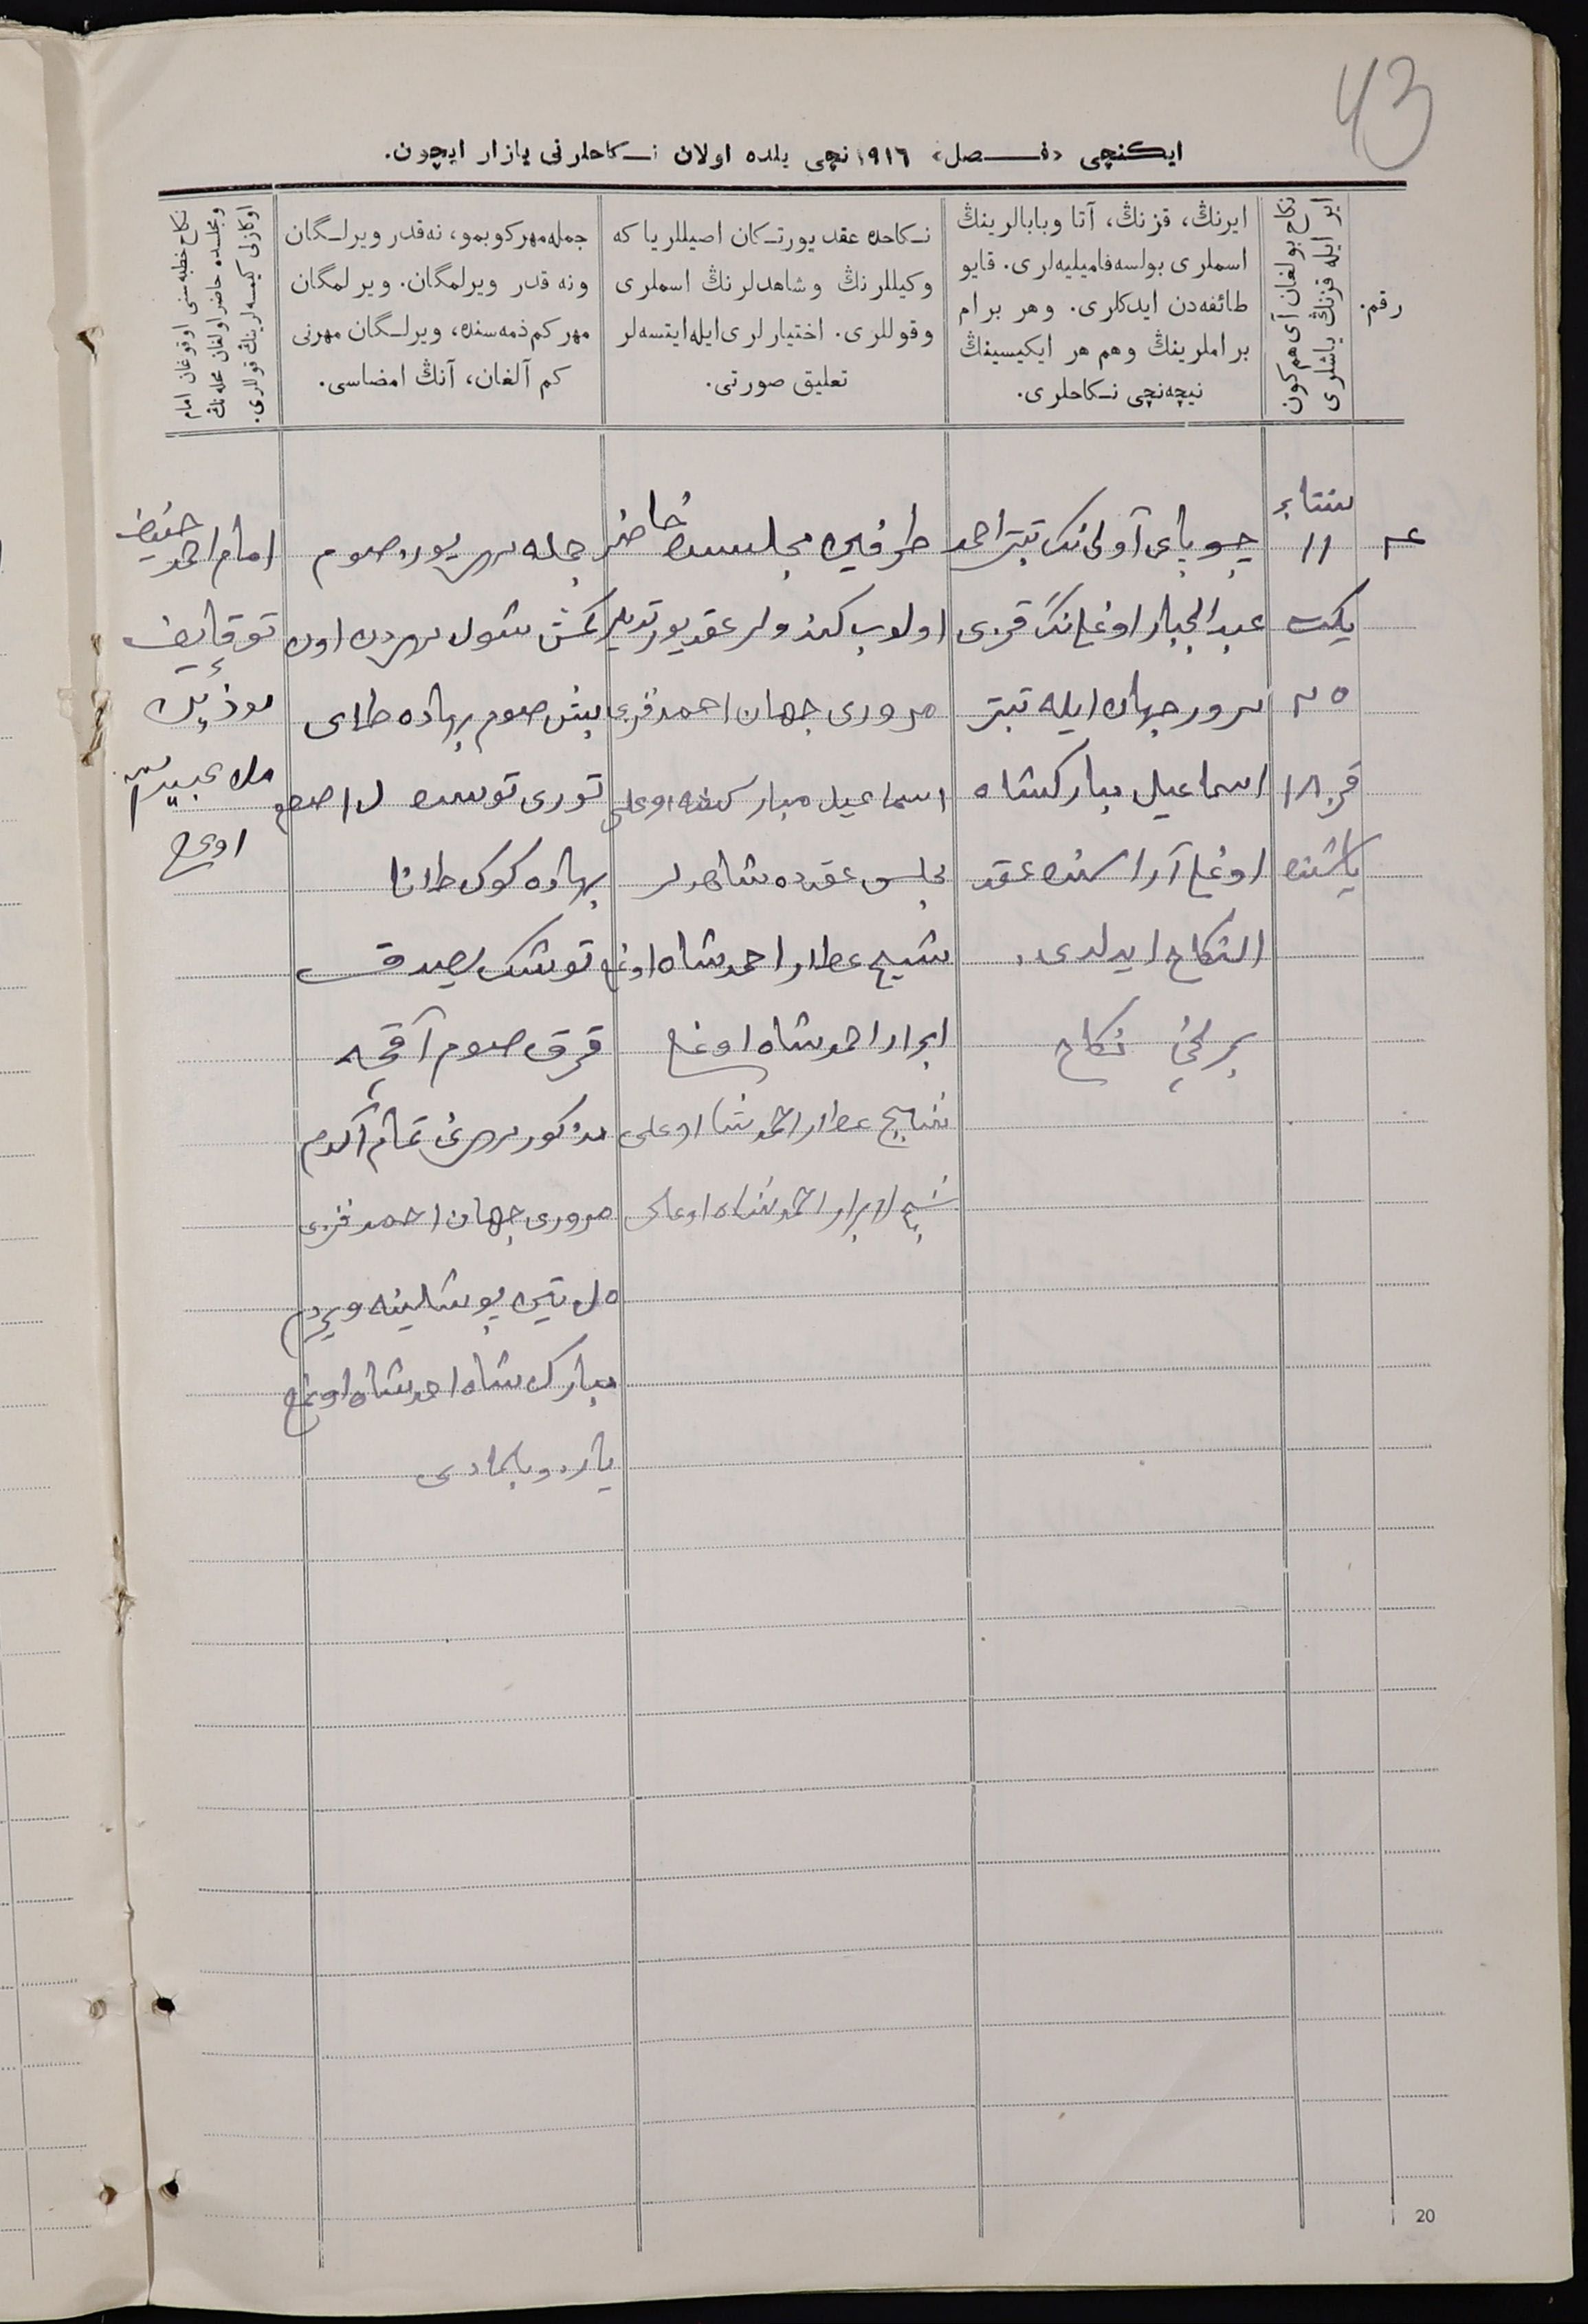 43
ایکنچی «فصل» ١٩١٦نچی یلده اولان نکاحلرنی یازار ایچون.
رقم.
ایر ایله قزنڭ یاشلری
نکاح بولغان آی هم کون
ایرنڭ، قزنڭ، آتا وبابالرینڭ
اسملری بولسه فامیلیه‌لری. قایو
طائفه‌دن ایدکلری. وهر برام
براملرینڭ وهم هر ایکیسینڭ
نیچه‌نچی نکاحلری.
نکاحده عقد یورتکان اصیللر یا که
وکیللرنڭ وشاهدلرنڭ اسملری
وقوللری. اختیارلری ایله ایتسه‌لر
تعلیق صورتی.
جمله مهر کوبمو، نه‌قدر ویرلگان
ونه قدر ویرلمگان. ویرلمگان
مهر کم ذمه‌سنده، ویرلگان مهرنی
کم آلغان، آنڭ امضاسی.
نکاح خطبه‌سنی اوقوغان امام
ومجلسده حاضر اولغان محله‌نڭ
اوکازلی کیمسه‌لرینڭ قوللری.
١١
یکت
٢٥
قز ١٨
یاشنده
چوبای آولی‌ننک تبتر احمد
عبدالجبار اوغلی‌ننک قزی
سرور جهان ایله تبتر
اسماعیل مبارکشاه
اوغلی آراسنده عقد
النکاح ایدلدی.
برنچی نکاح
طرفین مجلسده حاضر
اولوب کندولر عقد یورتدیلر
سروری جهان احمد قزی
اسماعیل مبارکشاه اوغلی
مجلس عقده شاهدلر
شیخ عطار احمدشاه اوغلی
ابرار احمدشاه اوغلی
شیخ عطار احمدشا اوغلی
شیخ الابرار احمدشاه اوغلی
جمله مهر یوز صوم
کمش شول مهردن اون
بیش صوم بهاده طلای
توری توسده
بهاده کوک طانا
توشک یصدق
قرق صوم آقچه
مذکور مهرنی تمام آلدم
سروری جهان احمد قزی
مبارک شاه احمدشاه اوغلی
یازو بلمادی
امام احمد حنیف
توقایف
مؤذنی
ملا عبید
اوغلی
20